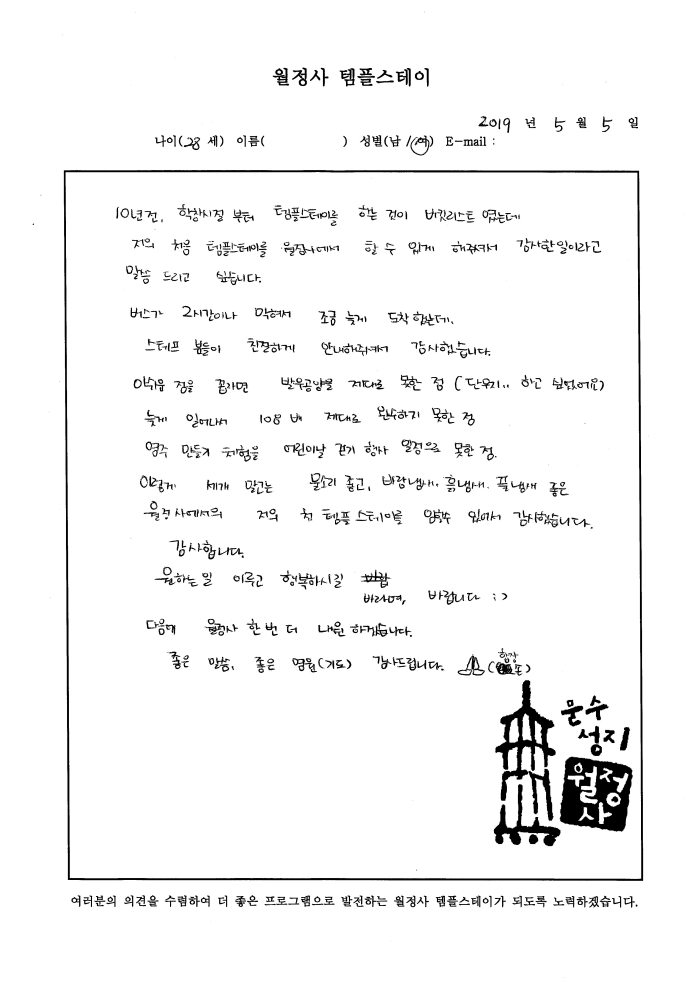 월정사 템플스테이
2019 년 5 월 5 일
나이(28 세) 이름( ) 성별(남 /여) E-mail :
10년전, 학창시절 부터 템플스테이를 하는 것이 버킷리스트 였는데
저의 처음 템플스테이를 월정사에서 할 수 있게 해주셔서 감사한일이라고
말씀 드리고 싶습니다.
버스가 2시간이나 막혀서 조금 늦게 도착 했는데,
스테프 분들이 친절하게 안내해주셔서 감사했습니다.
아쉬운 점을 꼽자면 발우공양을 제대로 못한 점 (단무지.. 하고 싶었어요)
늦게 일어나서 108 배 제대로 완수하지 못한 점
염주 만들기 체험을 어린이날 걷기 행사 일정으로 못한 점.
이렇게 세개 말고는 물소리 좋고, 바람냄새, 흙냄새, 풀냄새 좋은
월정사에서의 저의 첫 템플스테이를 할수 있어서 감사했습니다.
감사합니다.
원하는 일 이루고 행복하시길
바라며, 바랍니다 :>
다음에 월정사 한 번 더 내원 하겠습니다.
좋은 말씀, 좋은 염원(기도) 감사드립니다. (합장 손)
문수
성지
월정
사
여러분의 의견을 수렴하여 더 좋은 프로그램으로 발전하는 월정사 템플스테이가 되도록 노력하겠습니다.